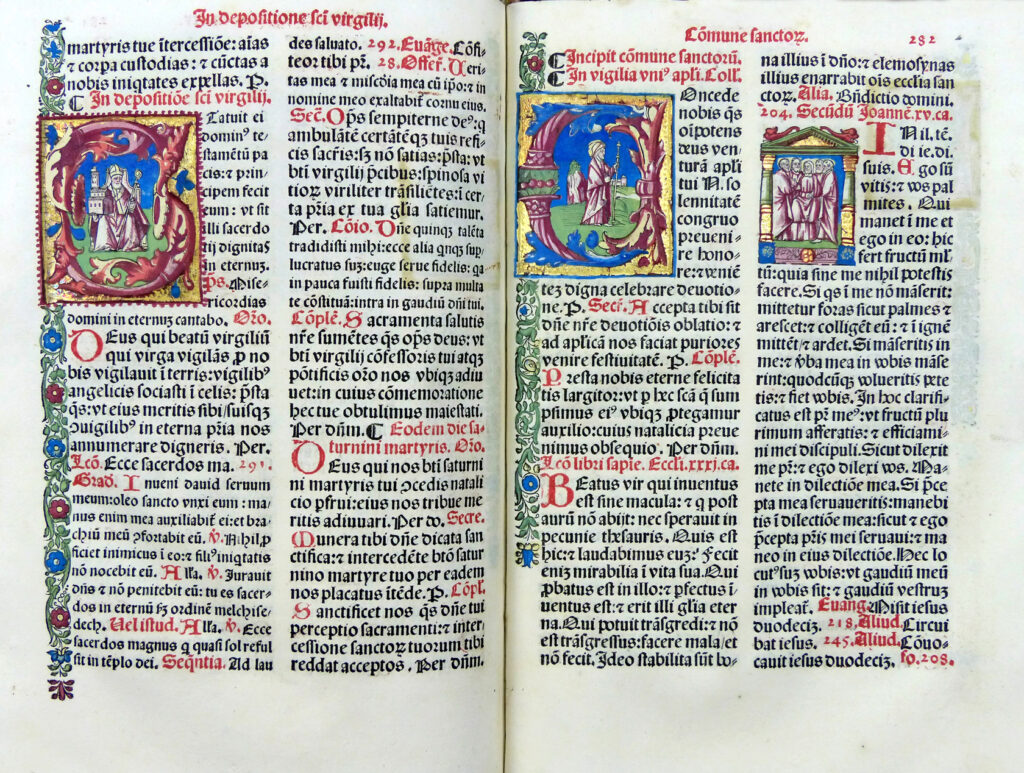 In depositione sci virgilij.
martyris tue ĩtercessiõe: aĩas
& corpa custodias: & cũctas a
nobis iniqtates expellas. P.
In depositiõe sci virgilij.
Tatuit ei
dominꝰ te
stamẽtũ pa
cis: & prin-
cipem fecit
eum: vt sit
illi sacerdo
tij dignitas
in eternuz.
ps. Mise-
ricordias
domini in eternuz cantabo. Oro.
DEus qui beatũ virgiliũ
qui virga vigilãs ꝓ no
bis vigilauit ĩ terris: vigilibꝰ
angelicis sociasti ĩ celis: p̃sta
qs: vt eius meritis sibi suisqꝫ
ꝑuigilibꝰ in eterna pria nos
annumerare digneris. Per.
Lcõ. Ecce sacerdos ma. 291.
Grad. Inueni dauid seruum
meum: oleo sancto vnxi eum: ma-
nus enim mea auxiliabit̃ ei: et bra-
chiũ meũ ꝯfortabit eũ. ℣. Nihil ꝓ
ficiet inimicus ĩ eo: & filꝰ iniqtatis
nõ nocebit eũ. Alla. ℣. Jurauit
dñs & nõ penitebit eũ: tu es sacer-
dos in eternũ fꝫ ordinẽ melchise-
dech. Uel istud. Alla. ℣. Ecce
sacerdos magnus q quasi sol reful
sit in tẽplo dei. Seqñtia. Ad lau
des saluato. 292. Euãge. Cõfi-
teor tibi pr̃. 28. Offer̃. Ueri-
tas mea & mĩscd̃ia mea cũ ip̃o: & in
nomine meo exaltabit̃ cornu eius.
Secr̃. Op̃s sempiterne deꝰ: q
ambulãtẽ certãtẽqꝫ tuis refi
cis sacr̃is: sꝫ nõ satias: p̃sta: vt
bt̃i virgilij p̃cibus: spinosa vi
tioꝝ viriliter trãsiliẽtes: ĩ cer
ta p̃ria ex tua gl̃ia satiemur.
Per. Cõio. Dñe quinqꝫ talẽta
tradidisti mihi: ecce alia qnqꝫ sup
lucratus suꝫ: euge serue fidelis: qa
in pauca fuisti fidelis: supra multa
te cõstituã: intra in gaudiũ dñi tui.
Cõplẽ. Sacramenta salutis
nr̃e sumẽtes qs op̃s deus: vt
bt̃i virgilij cõfessoris tui atqꝫ
põtificis or̃o nos vbiqꝫ adiu
uet: in cuius cõmemoratione
hec tue obtulimus maiestati.
Per dñm. Eodem die sa-
turnini martyris. Oro.
DEus qui nos bt̃i saturni
ni martyris tui ꝯcedis natali
cio ꝑfrui: eius nos tribue me
ritis adiuuari. Per do. Secre.
Munera tibi dñe dicata san
ctifica: & intercedẽte bt̃o satur
nino martyre tuo per eadem
nos placatus ĩtẽde. P. Cõpl̃.
Sanctificet nos qs dñe tui
perceptio sacramenti: & inter
cessione sanctoꝝ tuorum tibi
reddat acceptos. Per dñm.
Cõmune sanctoꝝ. 282
Incipit cõmune sanctorũ.
In vigilia vniꝰ apl̃i. Coll̃.
Oncede
nobis qs
oĩpotens
deus ven
turã apl̃i
tui N. so
lennitatẽ
congruo
preueni-
re hono-
re: & veniẽ
teꝫ digna celebrare deuotio-
ne. P. Secr̃. Accepta tibi sit
dñe nr̃e deuotiõis oblatio: &
ad aplicã nos faciat puriores
venire festiuitatẽ. P. Cõplẽ.
Presta nobis eterne felicita
tis largitor: vt ꝑ hec scã q sum
psimus eiꝰ vbiqꝫ ꝓtegamur
auxilio: cuius natalicia preue
nimus obsequio. Per dñm.
Lcõ libri sapie. Eccl̃i. xxxj. ca.
BEatus vir qui inuentus
est sine macula: & q post
aurũ nõ abijt: nec sperauit in
pecunie thesauris. Quis est
hic: & laudabimus euꝫ: Fecit
eniꝫ mirabilia ĩ vita sua. Qui
ꝓbatus est in illo: & ꝑfectus ĩ
uentus est: & erit illi gl̃ia eter
na. Qui potuit trãsgredi: & nõ
est trãsgressus: facere mala: et
nõ fecit. Ideo stabilita sũt bo-
na illius ĩ dño: & elemosynas
illius enarrabit oĩs ecclia san
ctoꝝ. Alia. Bñdictio domini.
204. Secũdũ Joannẽ. xv. ca.
IN il. tẽ.
di. ie. di.
suis. Ego sũ
vitis: & vos pal
mites. Qui
manet ĩ me et
ego in eo: hic
fert fructũ ml̃
tũ: quia sine me nihil potestis
facere. Si qs ĩ me nõ mãserit:
mittetur foras sicut palmes &
arescet: & colligẽt eũ: & ĩ ignẽ
mittẽt & ardet. Si mãseritis in
me: & v̾ba mea in vobis mãse
rint: quodcũqꝫ volueritis pete
tis: & fiet vobis. In hoc clarifi-
catus est pr̃ meꝰ: vt fructũ plu
rimum afferatis: & efficiami-
ni mei discipuli. Sicut dilexit
me pr̃: & ego dilexi vos. Ma-
nete in dilectiõe mea. Si p̃ce-
pta mea seruaueritis: manebi
tis ĩ dilectiõe mea: sicut & ego
p̃cepta pr̃is mei seruaui: & ma
neo in eius dilectiõe. Hec lo
cutꝰ suꝫ vobis: vt gaudiũ meũ
in vobis sit: & gaudiũ vestruꝫ
impleat̃. Euang. Misit iesus
duodeciꝫ. 218. Aliud. Circui
bat iesus. 245. Aliud. Cõuo-
cauit iesus duodeciꝫ. fo. 208.